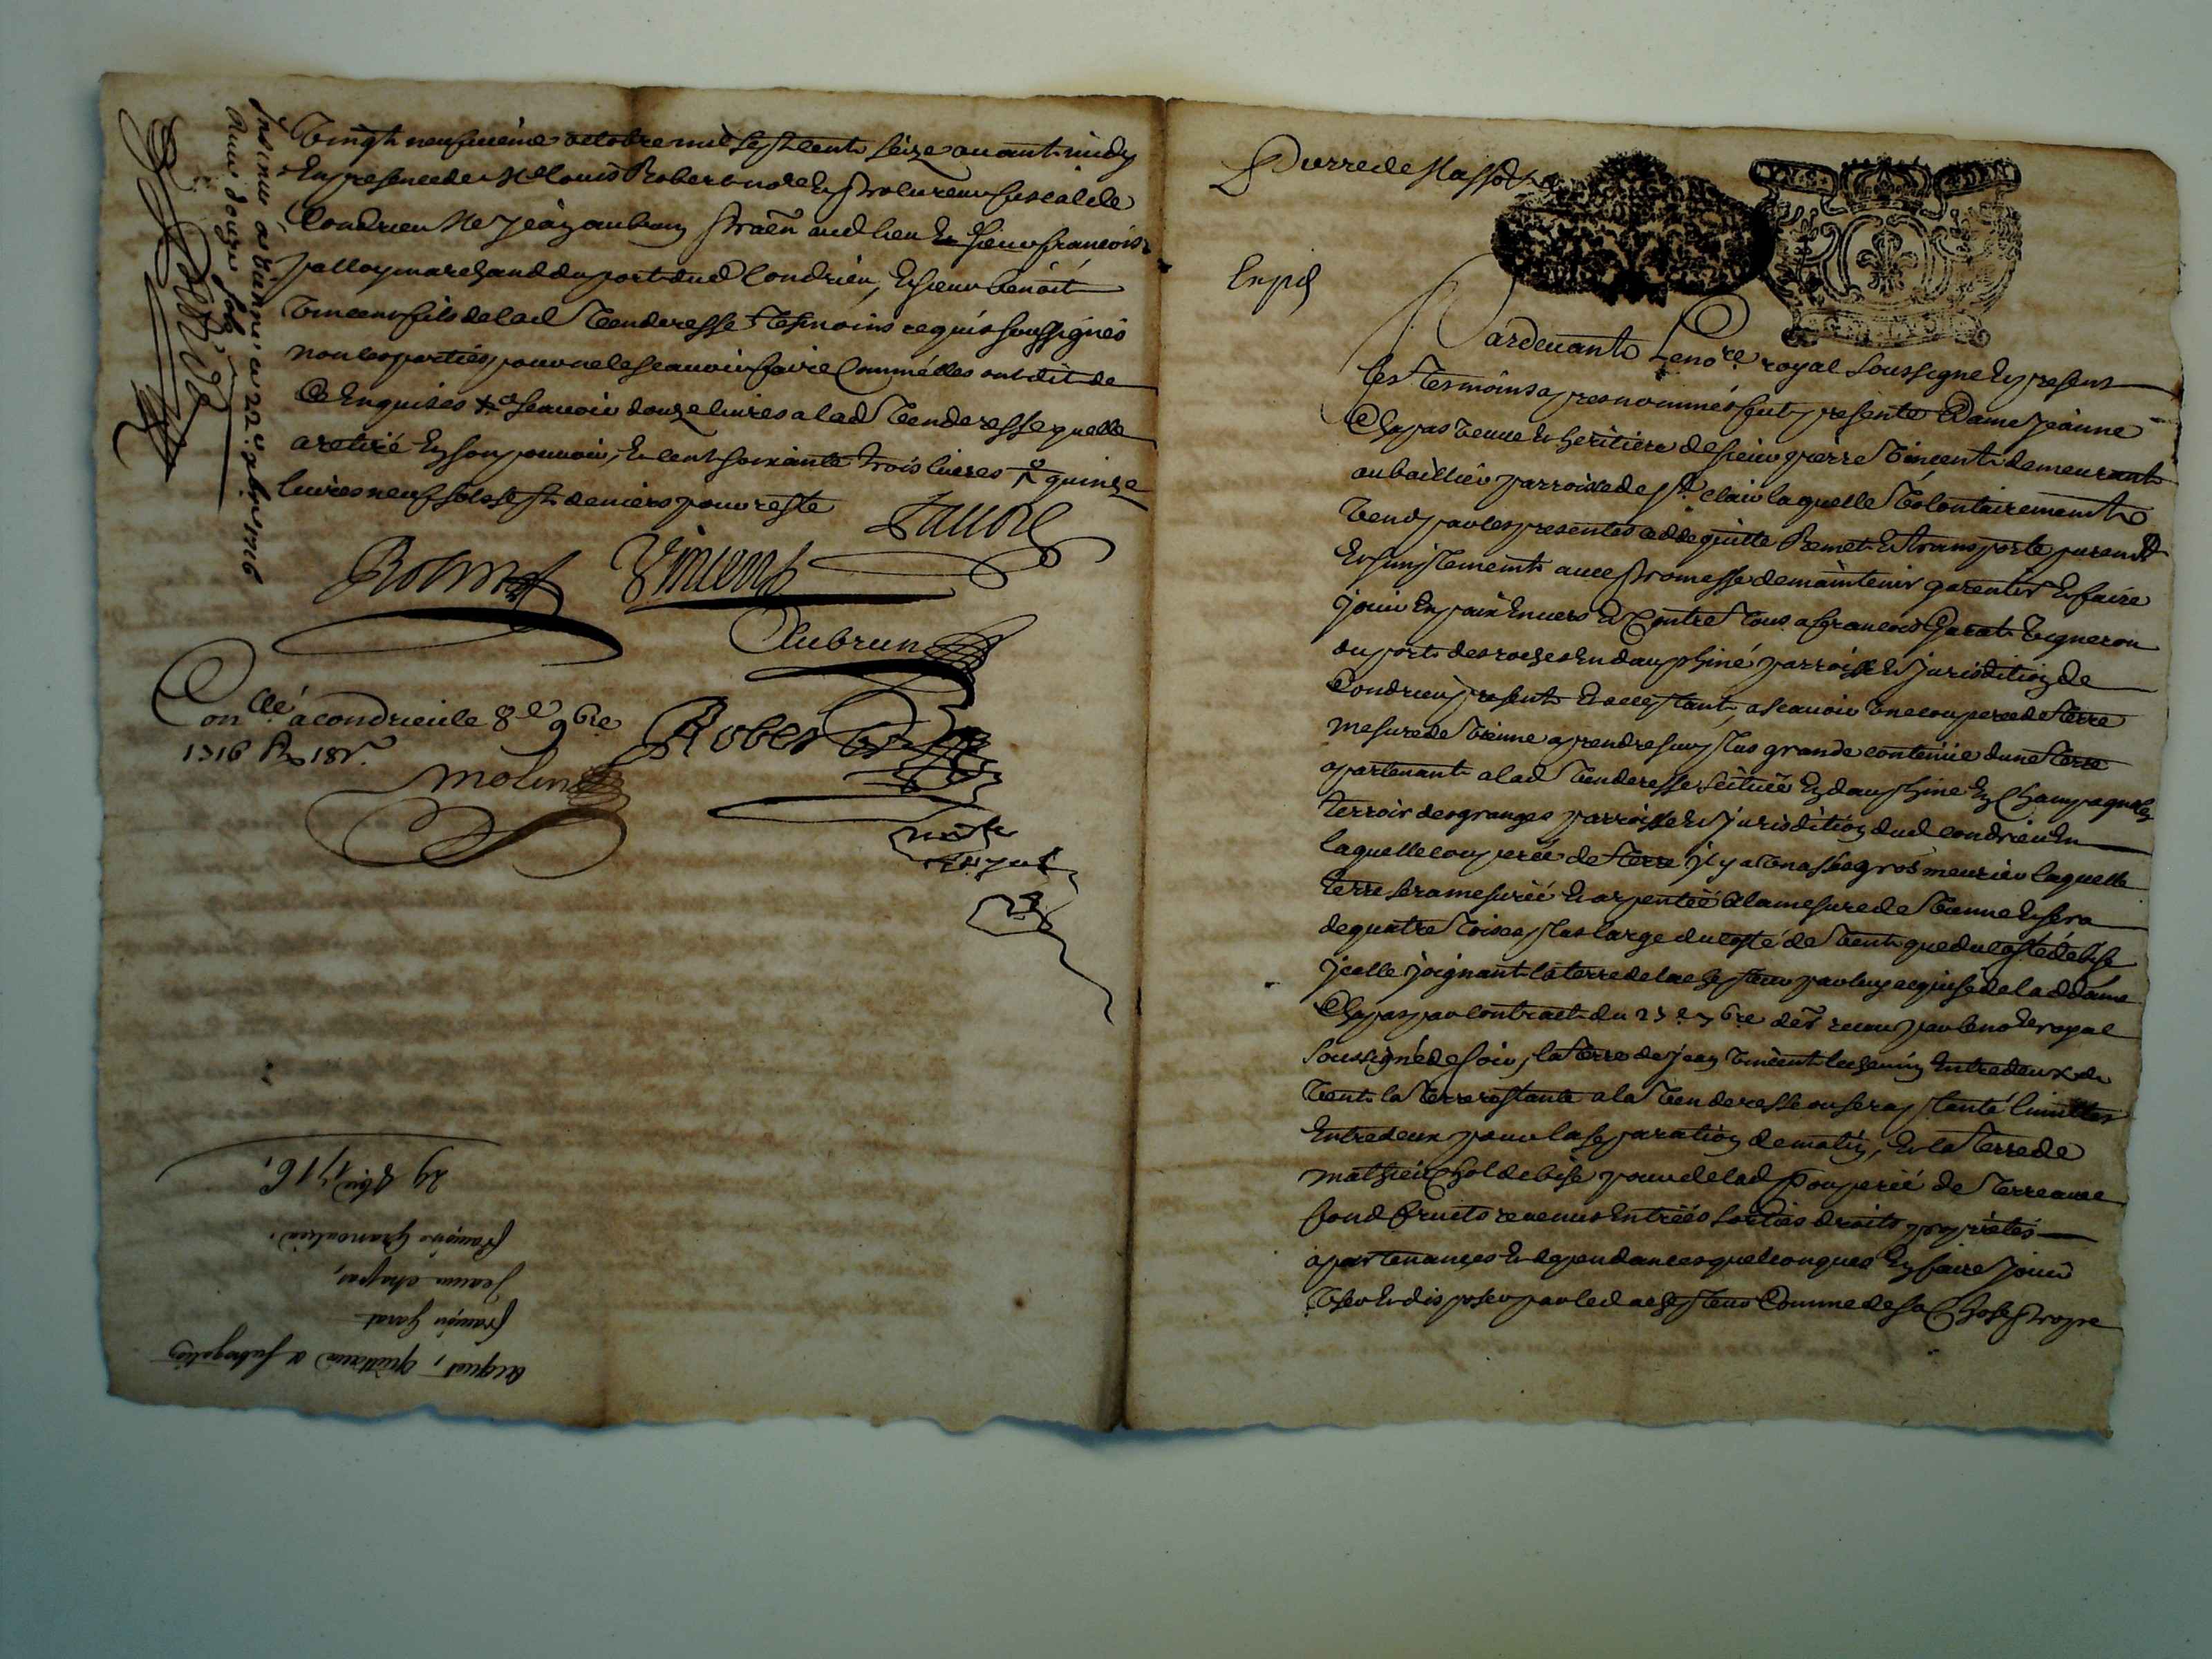 vingt neufvieme octobre mil sept cent seize avant midy
En presence de Me Louis Robert no.re Et procureur fiscal de
Condrieu Me Jean aubrun praěn aud lieu Et sieur francois
palloy marchand du port dud Condrieu, Et sieur benoit
vincent fils de lad venderesse tesmoins requis soussignés
non les parties pour ne le scavoir faire Comm'elles ont dit de
Ce Enquises X a scavoir douze livres a lad venderesse quelle
a retiré En son pouvoir, Et cent soixante trois livres quinze
livres neuf sols sept deniers pour reste
Vincent
Aubrun
Con.llé a condrieu le 8.e 9bre
1716 R 18 s.
Robert
molin
Insinué a vienne ce 22.e 9bre 1716
Receu douze sols
29 8bre 1716,
françois
Jeanne chapas,
françois Garat
acquit, quittance et subrogation
Pierre de Massot
Enpd
Pardevant Le no.re royal soussigné Et presents
les tesmoins apres nommés fut presente Dame Jeanne
Chapas veuve Et heritiere de sieur pierre vincent demeurant
au baillieu parroisse de St clair laquelle volontairement
vend par les presentes cedde quitte Remet Et transporte purement
Et simplement avec promesse de maintenir garentir Et faire
jouir En paix Envers Et Contre tous a francois Garat vigneron
du port des roches En dauphiné parroisse Et jurisdition de
Condrieu present Et acceptant, a scavoir une couperée de terre
mesure de vienne a prendre sur plus grande contenüe d'une terre
apartenant a lad venderesse scituée En dauphiné En Champagnole
terroir des granges parroisse Et jurisdition dud condrieu En
laquelle couperée de terre il y a un assés gros meurier laquelle
terre sera mesurée Et arpentée a la mesure de vienne Et sera
de quatre toises plus large du costé de vent que du costé de bise
icelle joignant la terre de lachepteur par luy acquise de lad dame
Chapas par contract du 25.e 7bre der receu par le no.re royal
soussigné de soir, la terre de jean vincent le chemin Entredeux de
vent la terre restante a la venderesse ou sera planté limittes
Entredeux pour la separation de matin, Et la terre de
mathieu Chol de bise pour de lad Couperée de terre avec
fond fruits revenus Entrées sorties droits proprietés
apartenances Et dependances quelconques En faire jouir
user Et disposer par led achepteur Comme de sa Chose propre